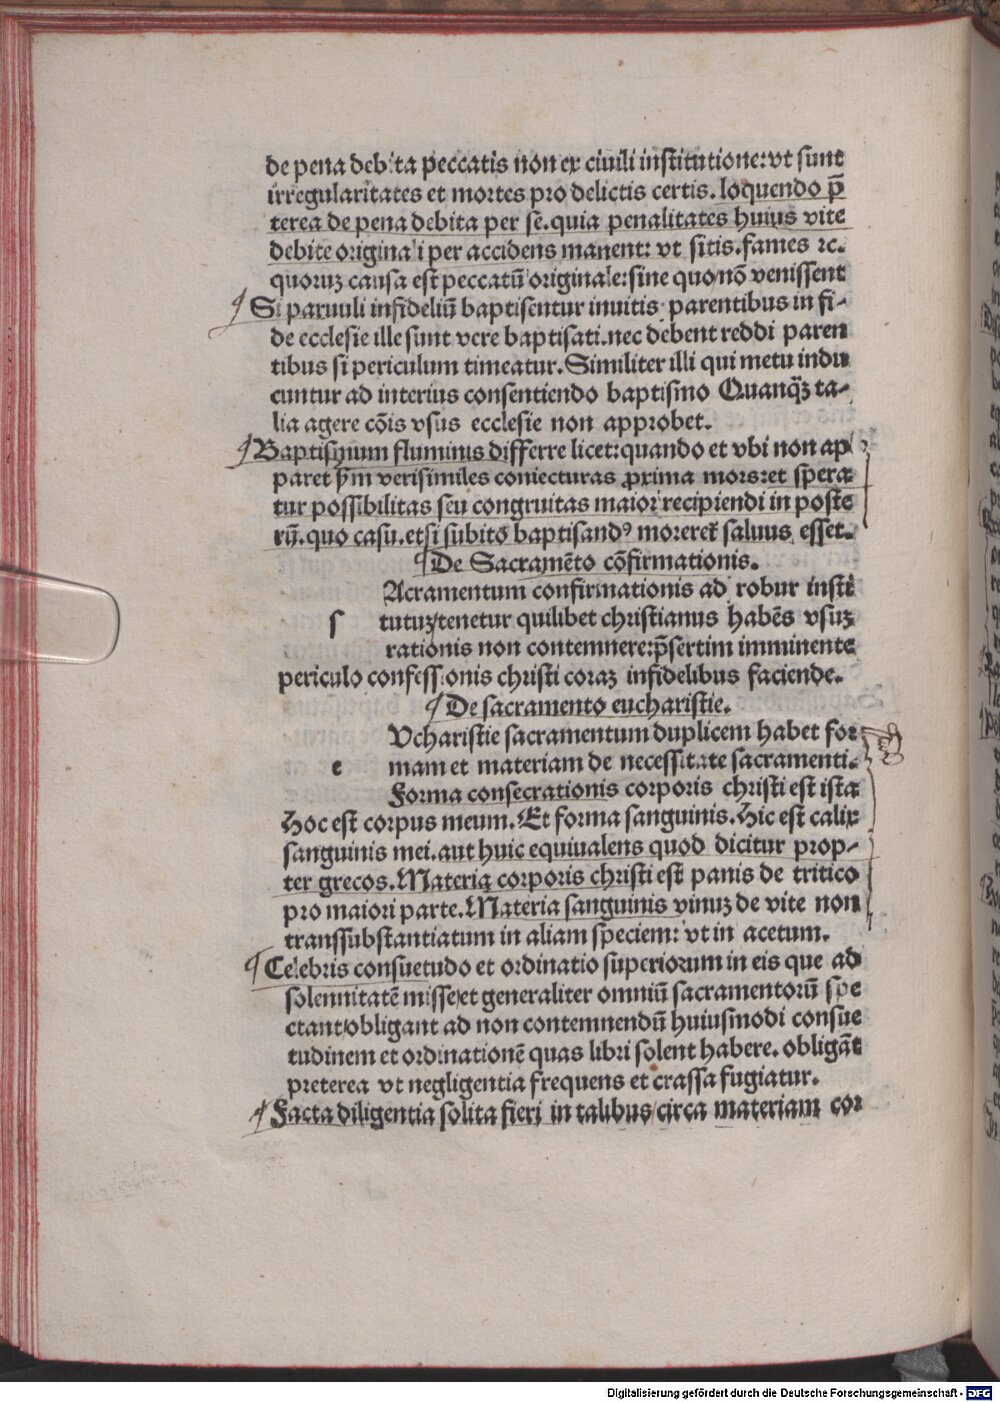 de pena debita peccatis non ex ciuili institutione: vt sunt
irregularitates et mortes pro delictis certis. loquendo p̄
terea de pena debita per se. quia penalitates huius vite
debite originali per accidens manent: vt sitis. fames ⁊c.
quoruꝫ causa est peccatū originale: sine quo nō venissent
¶ Si paruuli infideliū baptisentur inuitis parentibus in fi-
de ecclesie ille sunt vere baptisati. nec debent reddi paren
tibus si periculum timeatur. Similiter illi qui metu indu
cuntur ad interius consentiendo baptismo Quanq̄ꝫ ta-
lia agere cōis vsus ecclesie non approbet.
¶ Baptismum fluminis differre licet: quando et vbi non ap
paret p̄m verisimiles coniecturas ꝓxima mors: et spera
tur possibilitas seu congruitas maior recipiendi in poste
rū. quo casu. etsi subito baptisandꝰ moreret̄ saluus esset.
¶ De Sacramēto cōfirmationis.
Acramentum confirmationis ad robur insti
s tutuꝫ/ tenetur quilibet christianus habēs vsuꝫ
rationis non contemnere: p̄sertim imminente
periculo confessionis christi coraꝫ infidelibus faciende.
¶ De sacramento eucharistie.
Vcharistie sacramentum duplicem habet for
e mam et materiam de necessitate sacramenti.
Forma consecrationis corporis christi est ista
Hoc est corpus meum. Et forma sanguinis. Hic est calix
sanguinis mei. aut huic equiualens quod dicitur prop-
ter grecos. Materia corporis christi est panis de tritico
pro maiori parte. Materia sanguinis vinuꝫ de vite non
transsubstantiatum in aliam speciem: vt in acetum.
¶ Celebris consuetudo et ordinatio superiorum in eis que ad
solennitatē misse/ et generaliter omniū sacramentorū spe
ctant/ obligant ad non contemnendū huiusmodi consue
tudinem et ordinationē quas libri solent habere. obligāt
preterea vt negligentia frequens et crassa fugiatur.
¶ Facta diligentia solita fieri in talibus/ circa materiam cor
Digitalisierung gefördert durch die Deutsche Forschungsgemeinschaft - DFG